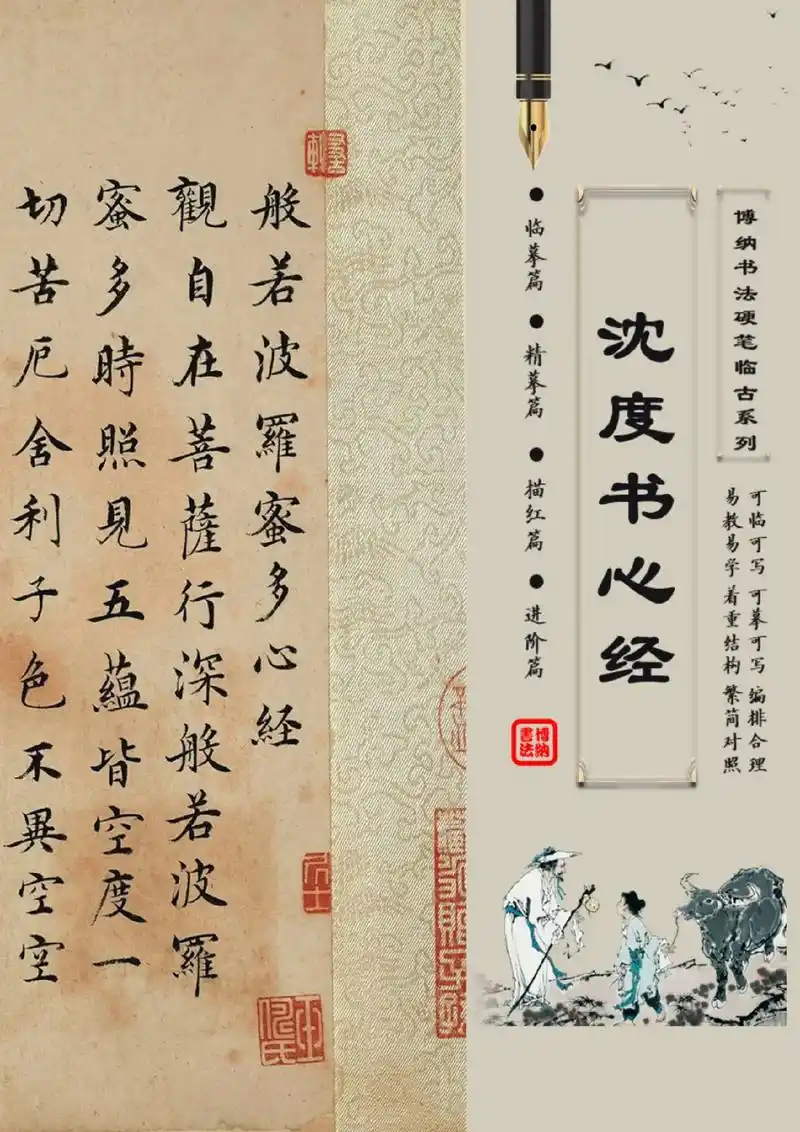 博纳书法硬笔临古系列
可临可写 可摹可写 编排合理
易教易学 着重结构 繁简对照
沈度书心经
● 临摹篇 ● 精摹篇 ● 描红篇 ● 进阶篇
博纳
書法
般若波羅蜜多心経
觀自在菩薩行深般若波羅
蜜多時照見五蘊皆空度一
切苦厄舍利子色不異空空